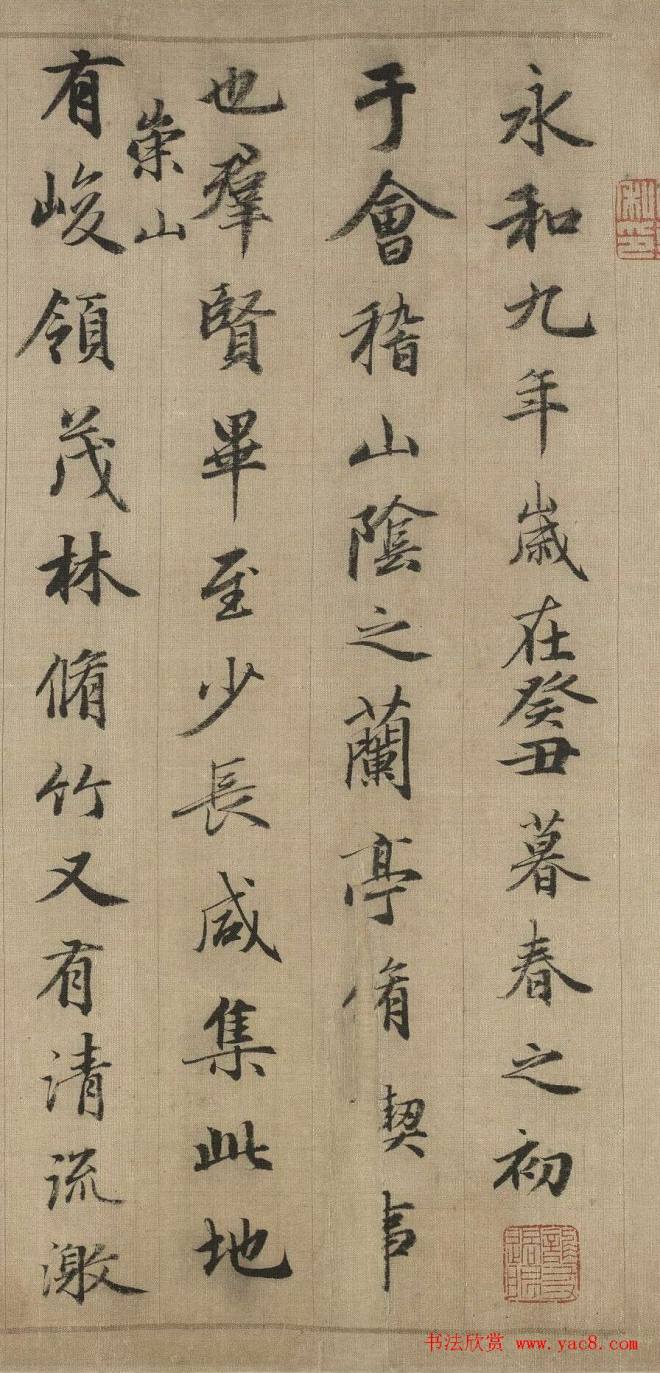 永和九年歲在癸丑暮春之初
于會稽山陰之蘭亭脩禊事
也羣賢畢至少長咸集此地
有崇山峻領茂林脩竹又有清流激
书法欣赏 www.yac8.com